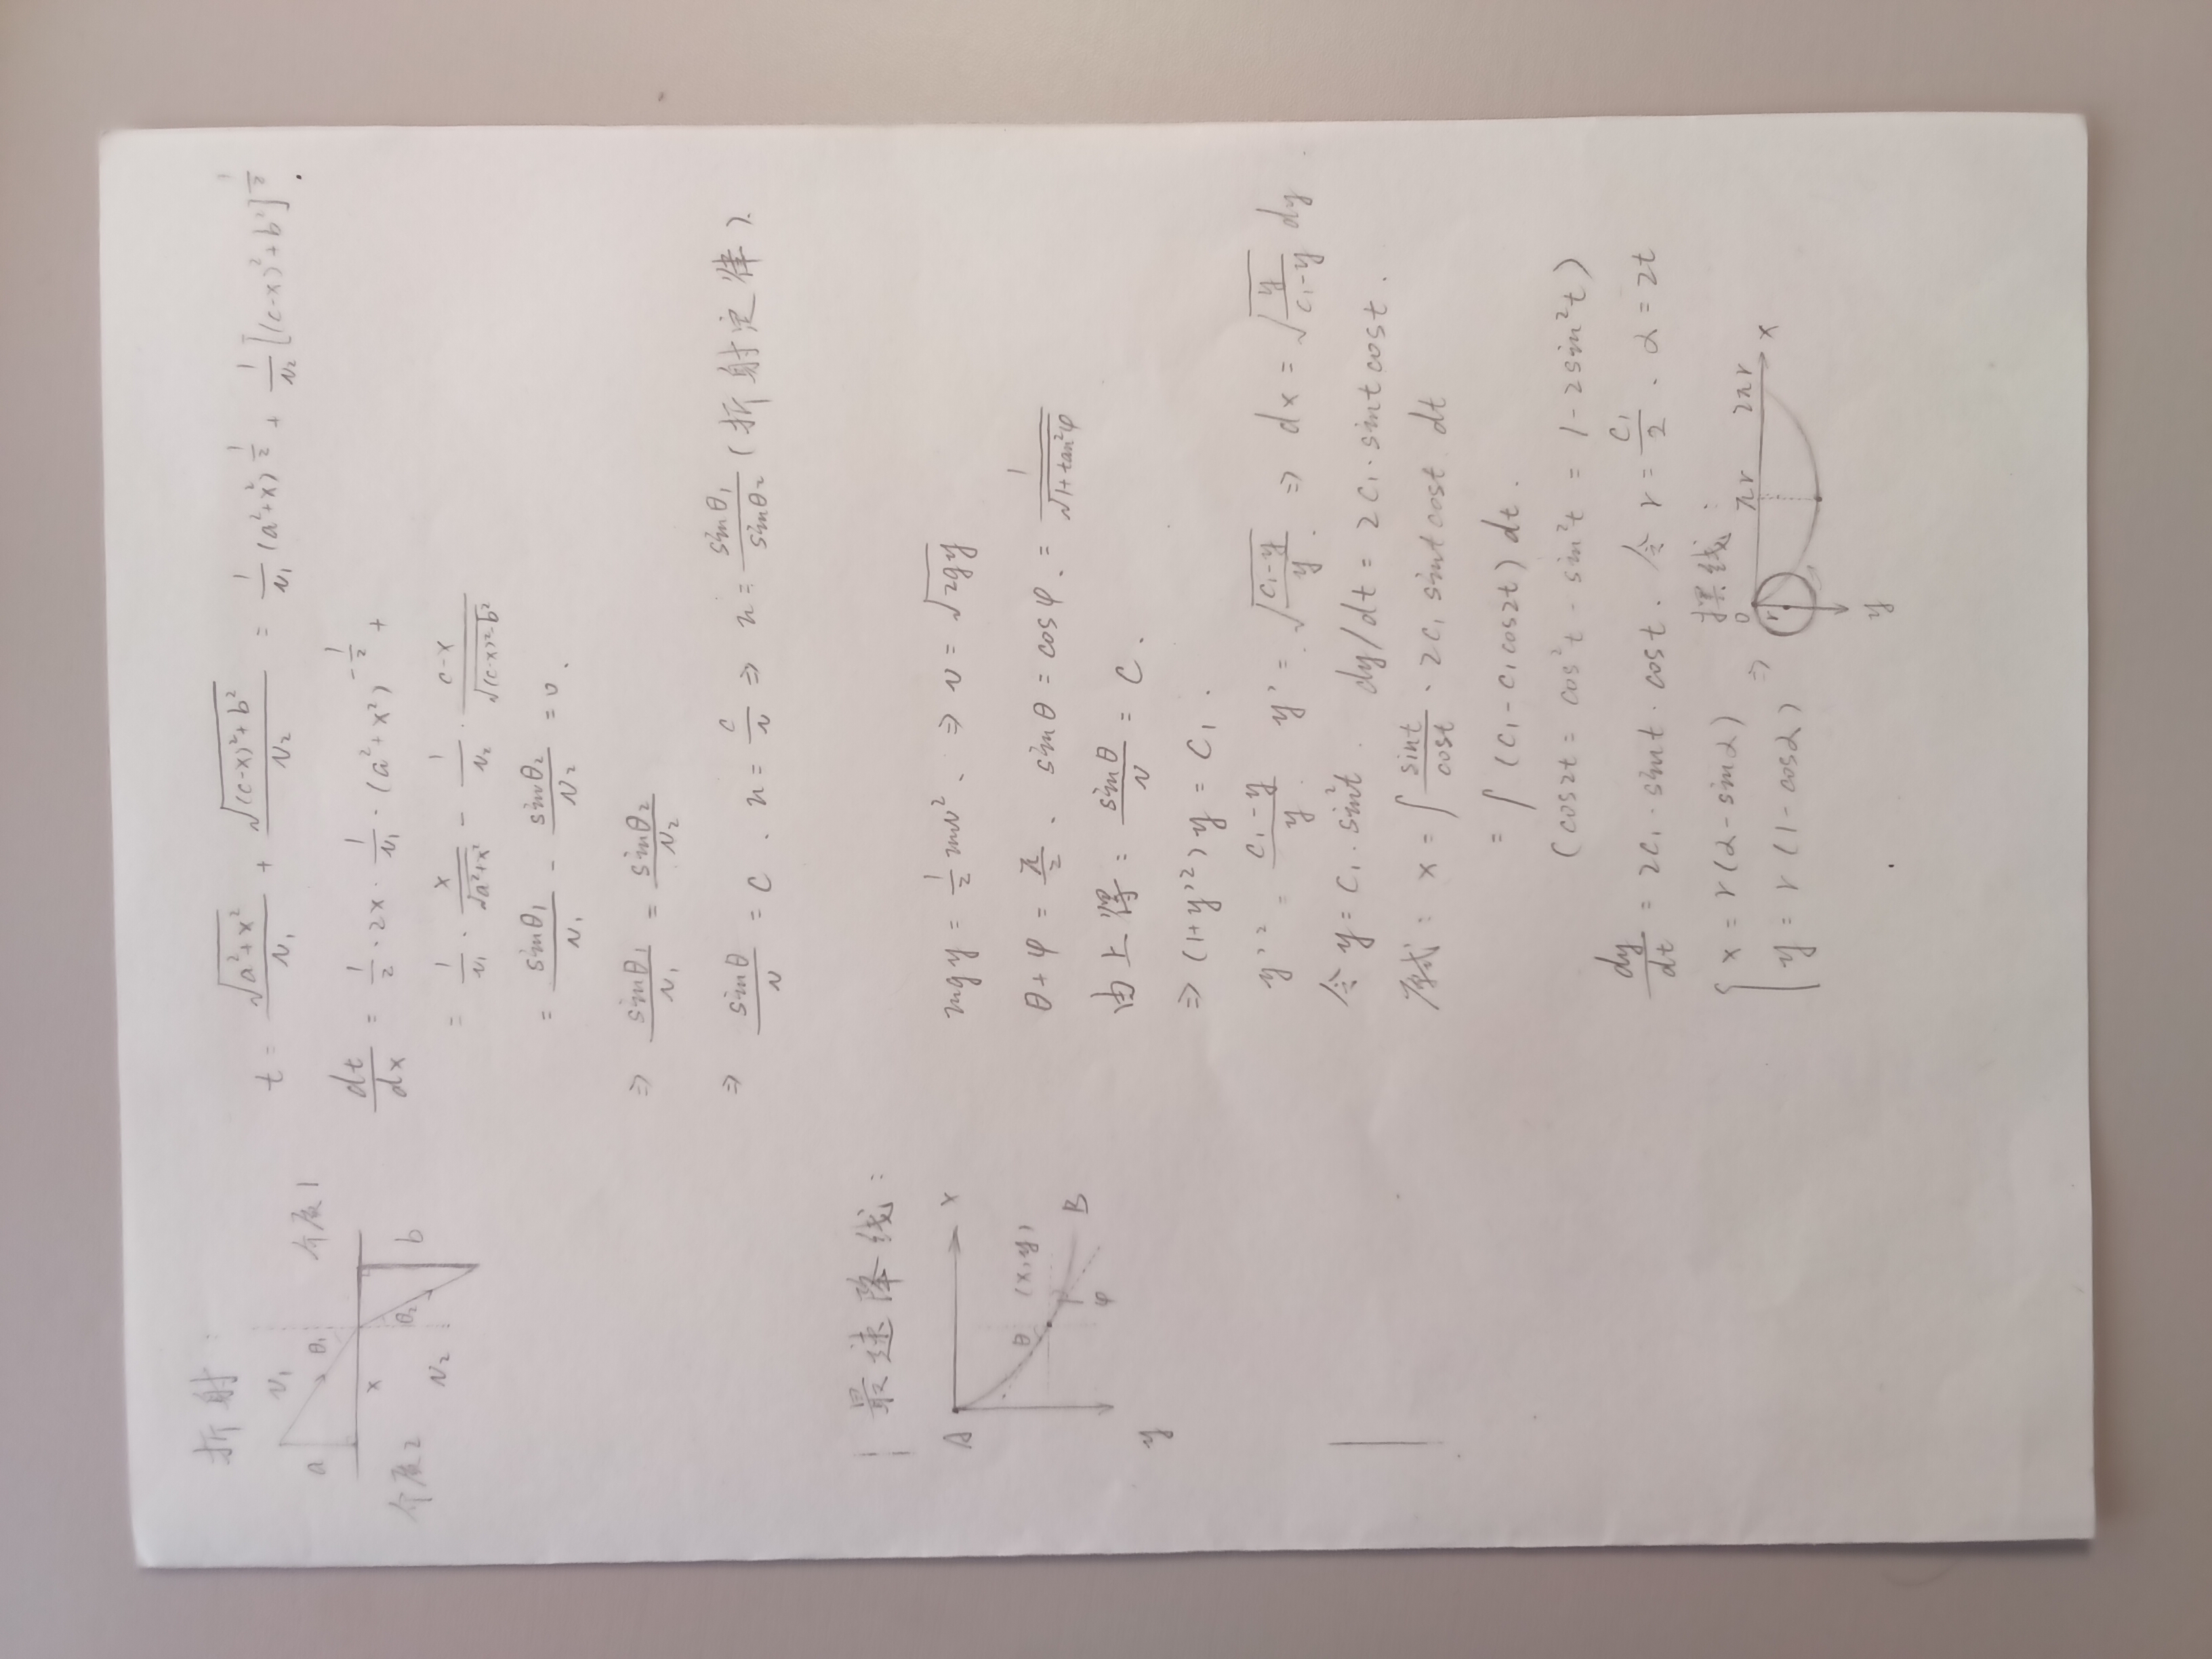 折射：
介质1
v₁
a
θ₁
x
θ₂
b
介质2
v₂
t = √(a²+x²)/v₁ + √((c-x)²+b²)/v₂ = 1/v₁ (a²+x²)^(1/2) + 1/v₂ [(c-x)²+b²]^(1/2) .
dt/dx = 1/2 · 2x · 1/v₁ · (a²+x²)^(-1/2) +
= 1/v₁ · x/√(a²+x²) - 1/v₂ · (c-x)/√((c-x)²-b²)
= sinθ₁/v₁ - sinθ₂/v₂ = 0 .
⇒ sinθ₁/v₁ = sinθ₂/v₂
⇒ sinθ/v = C 、 n = c/v ⇒ n = sinθ₁/sinθ₂ (折射定律).
最速降线：
A
x
θ
(x,y)
B
φ
y
mgy = 1/2 mv² 、 ⇒ v = √(2gy)
θ+φ = π/2 、 sinθ = cosφ 、 = 1/√(1+tan²φ)
由上得： sinθ/v = C .
⇒ (1+y'²)y = C₁ .
y'² = (C₁-y)/y . y' = √((C₁-y)/y) . ⇒ dx = √(y/(C₁-y)) dy
令 y = C₁ · sin²t . dy/dt = 2C₁ · sint cost .
原式： x = ∫ sint/cost · 2C₁ sint cost dt
= ∫ (C₁ - C₁cos2t) dt .
(cos2t = cos²t - sin²t = 1 - 2sin²t)
dy/dt = 2C₁ · sint · cost . 令 r = C₁/2 . α = 2t
{ x = r(α - sinα)
y = r(1 - cosα) ⇒
摆线：
0
πr
2πr
x
r
y